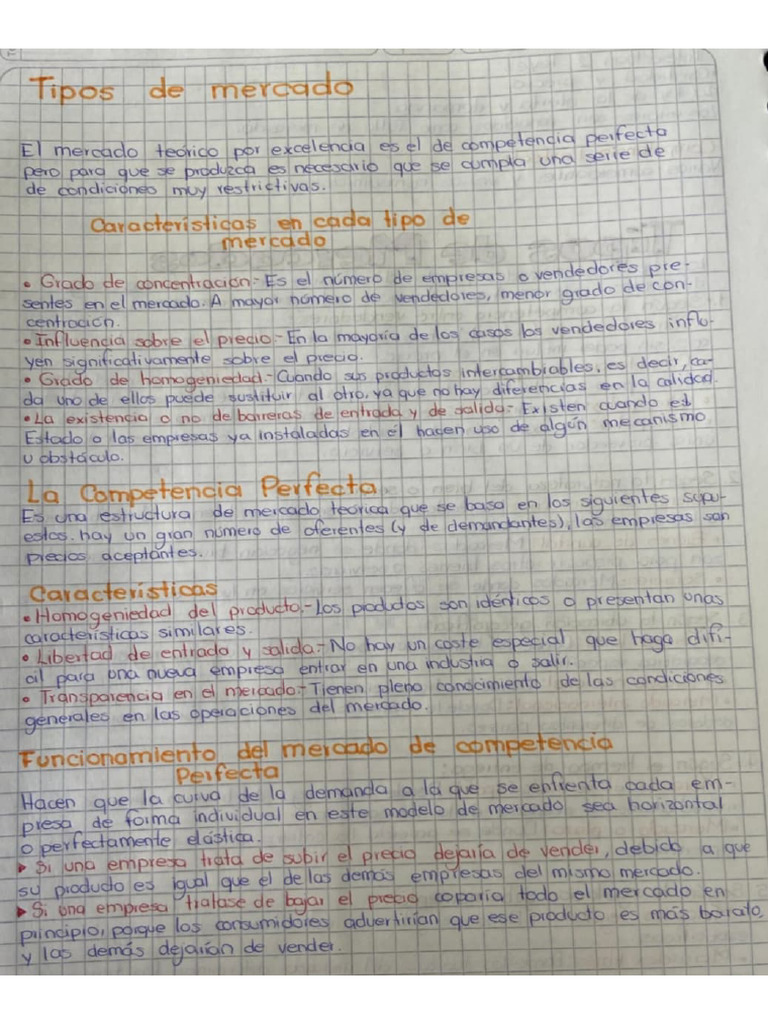 Tipos de mercado
El mercado teórico por excelencia es el de competencia perfecta
pero para que se produzca es necesario que se cumpla una serie de
de condiciones muy restrictivas.
Características en cada tipo de
mercado
• Grado de concentración.- Es el número de empresas o vendedores pre-
sentes en el mercado. A mayor número de vendedores, menor grado de con-
centración.
• Influencia sobre el precio.- En la mayoría de los casos los vendedores influ-
yen significativamente sobre el precio.
• Grado de homogeniedad.- Cuando sus productos intercambiables, es decir, ca-
da uno de ellos puede sustituir al otro, ya que no hay diferencias en la calidad.
• La existencia o no de barreras de entrada y de salida.- Existen cuando el
Estado o las empresas ya instaladas en él hacen uso de algún mecanismo
u obstáculo.
La Competencia Perfecta
Es una estructura de mercado teórica que se basa en los siguientes supu-
estos. hay un gran número de oferentes (y de demandantes), las empresas son
precios aceptantes.
Características
• Homogeniedad del producto.- Los productos son idénticos o presentan unas
características similares.
• Libertad de entrada y salida.- No hay un coste especial que haga difi-
cil para una nueva empresa entrar en una industria o salir.
• Transparencia en el mercado.- Tienen pleno conocimiento de las condiciones
generales en las operaciones del mercado.
Funcionamiento del mercado de competencia
Perfecta
Hacen que la curva de la demanda a la que se enfrenta cada em-
presa de forma individual en este modelo de mercado sea horizontal
o perfectamente elástica.
▸ Si una empresa trata de subir el precio dejaría de vender, debido a que
su producto es igual que el de las demás empresas del mismo mercado.
▸ Si una empresa tratase de bajar el precio coparía todo el mercado en
principio, porque los consumidores advertirían que ese producto es más barato,
y las demás dejarían de vender.